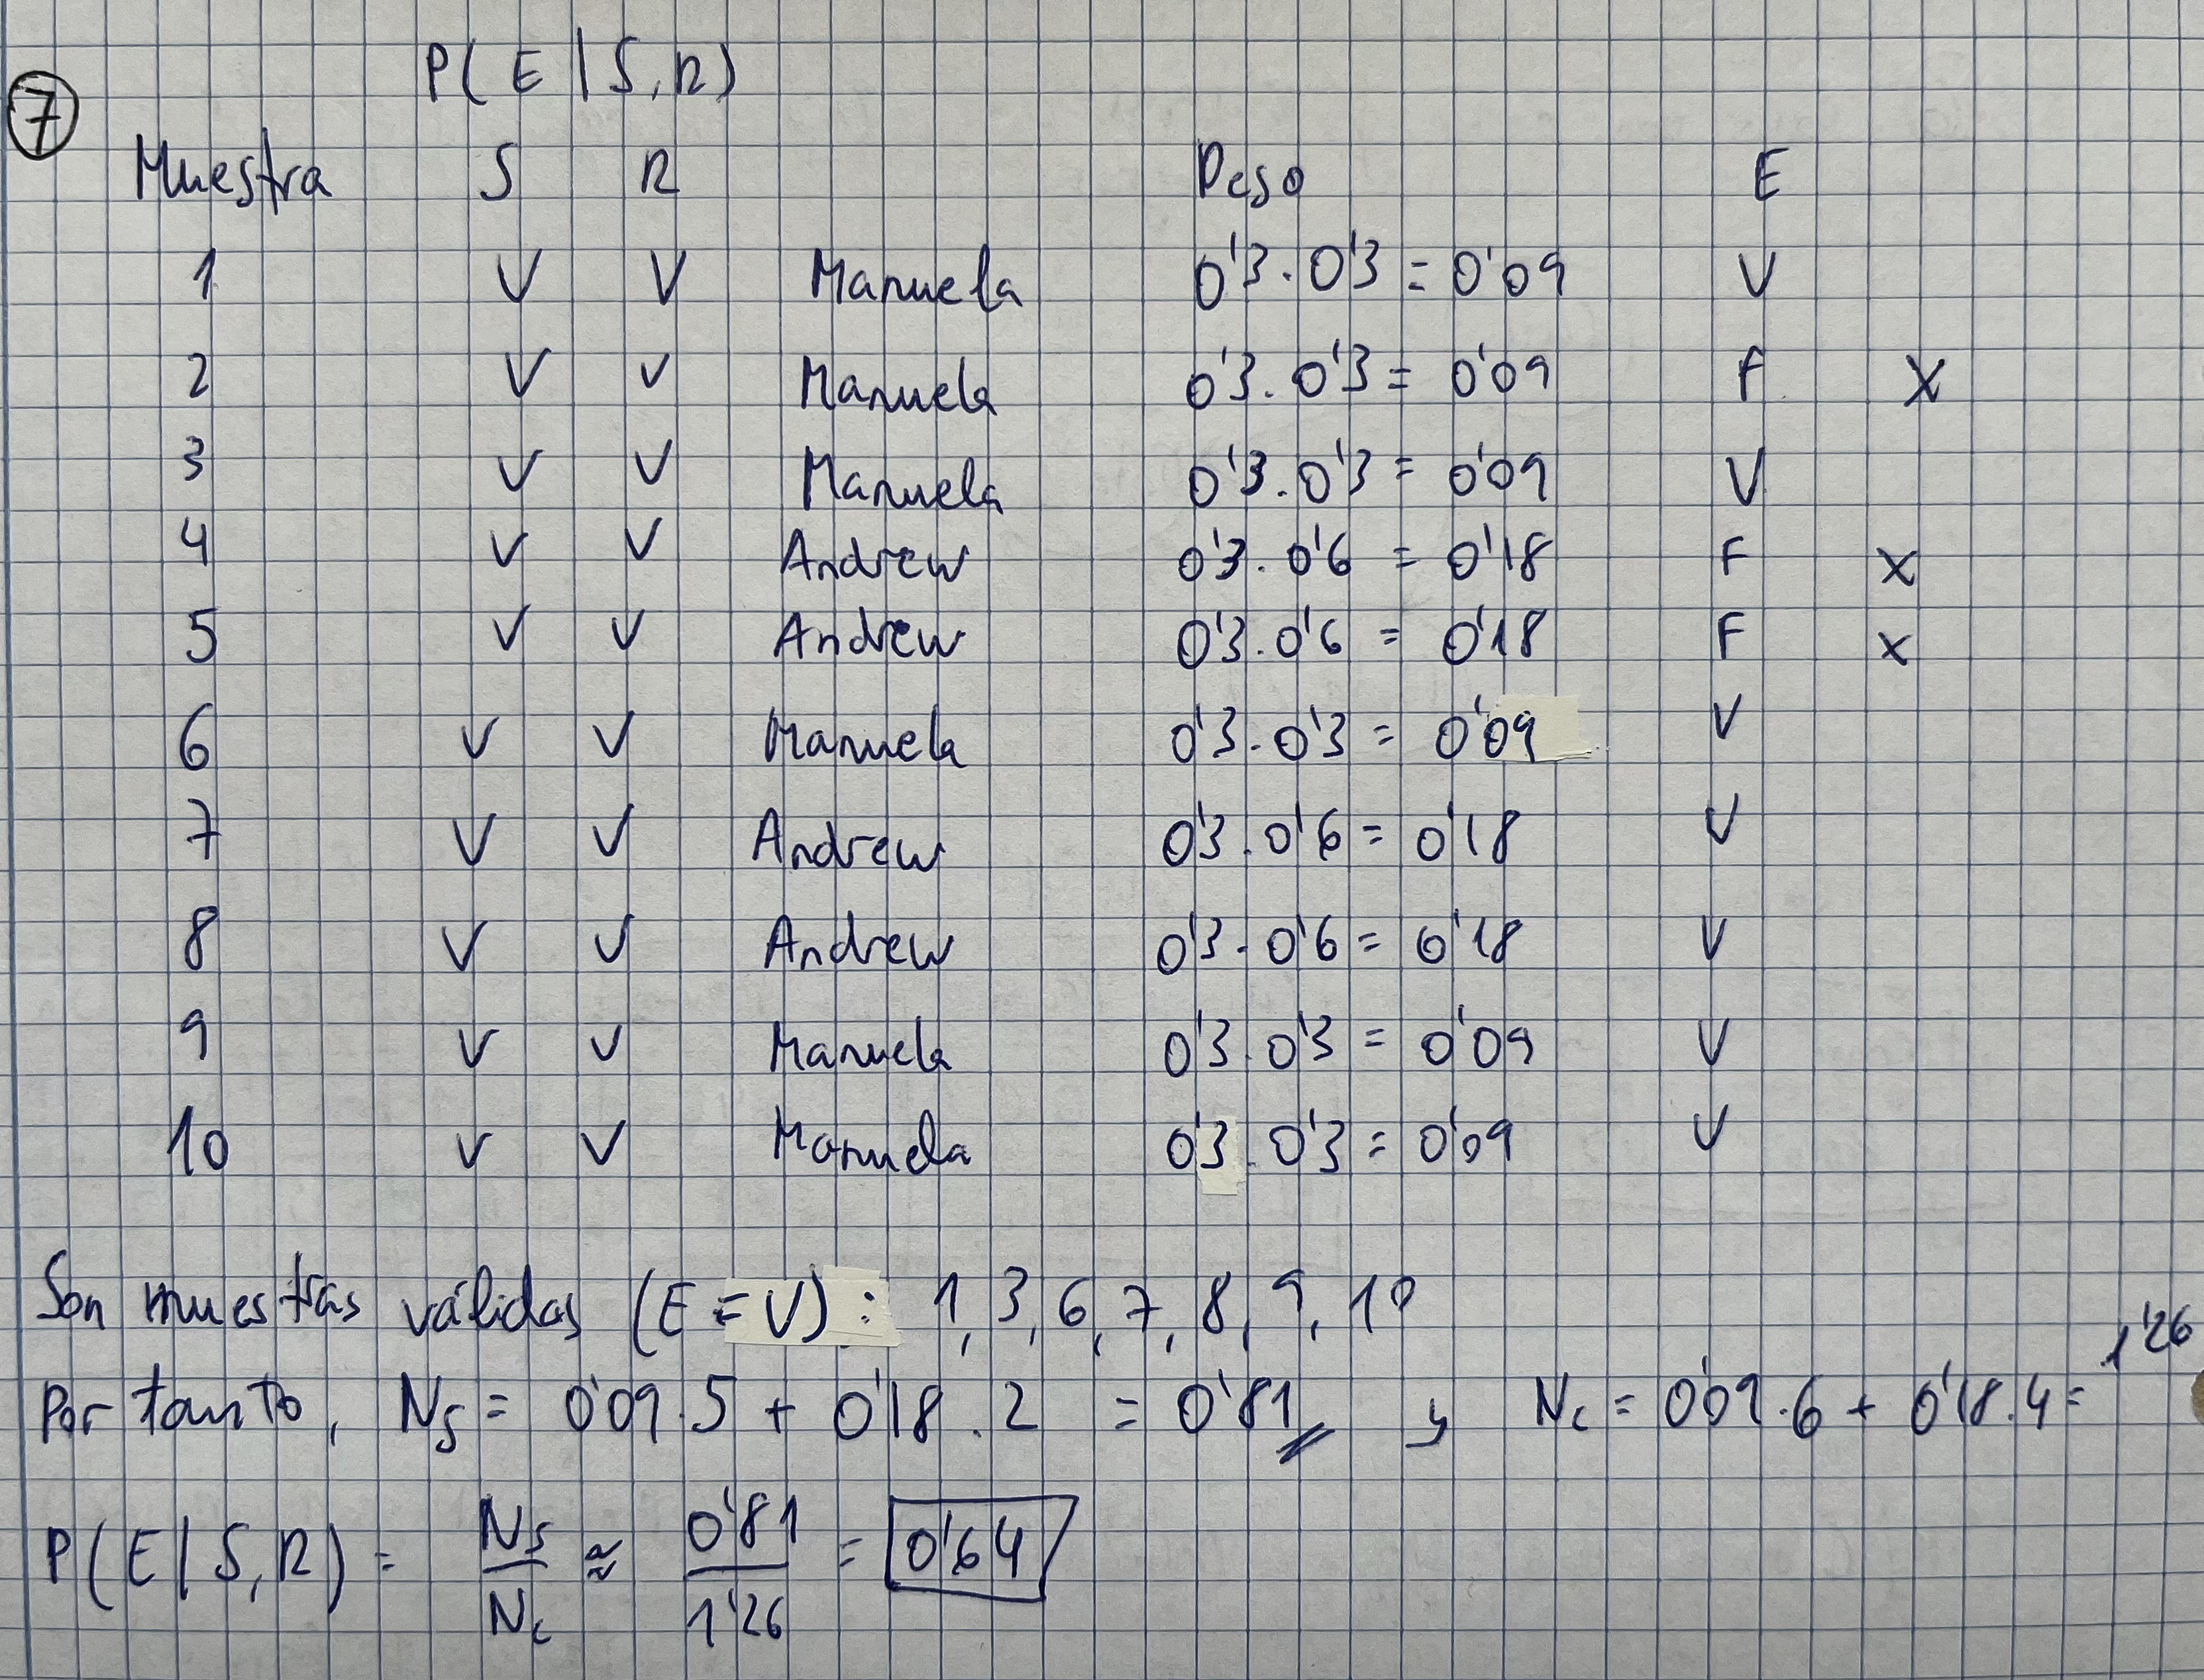 P(E|S,R)
7
Muestra S R Peso E
1 V V Manuela 0'3·0'3 = 0'09 V
2 V V Manuela 0'3.0'3 = 0'09 F X
3 V V Manuela 0'3.0'3 = 0'09 V
4 V V Andrew 0'3.0'6 = 0'18 F X
5 V V Andrew 0'3.0'6 = 0'18 F X
6 V V Manuela 0'3.0'3 = 0'09 V
7 V V Andrew 0'3.0'6 = 0'18 V
8 V V Andrew 0'3.0'6 = 0'18 V
9 V V Manuela 0'3.0'3 = 0'09 V
10 V V Manuela 0'3.0'3 = 0'09 V
Son muestras válidas (E = V): 1, 3, 6, 7, 8, 9, 10
Por tanto, Ns = 0'09.5 + 0'18.2 = 0'81 y Nc = 0'09.6 + 0'18.4 = 1'26
P(E|S,R) = Ns/Nc ≈ 0'81/1'26 = 0'64